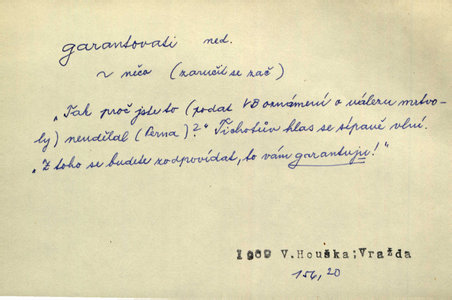 garantovati ned.
~ něco (zaručit se zač)
„Tak proč jste to (podat VB oznámení o nálezu mrtvo-
ly) neudělal (Perna)?“ Tichotův hlas se štípavě vlní.
„Z toho se budete zodpovídat, to vám garantuju!“
1969 V.Houška:Vražda
154, 20